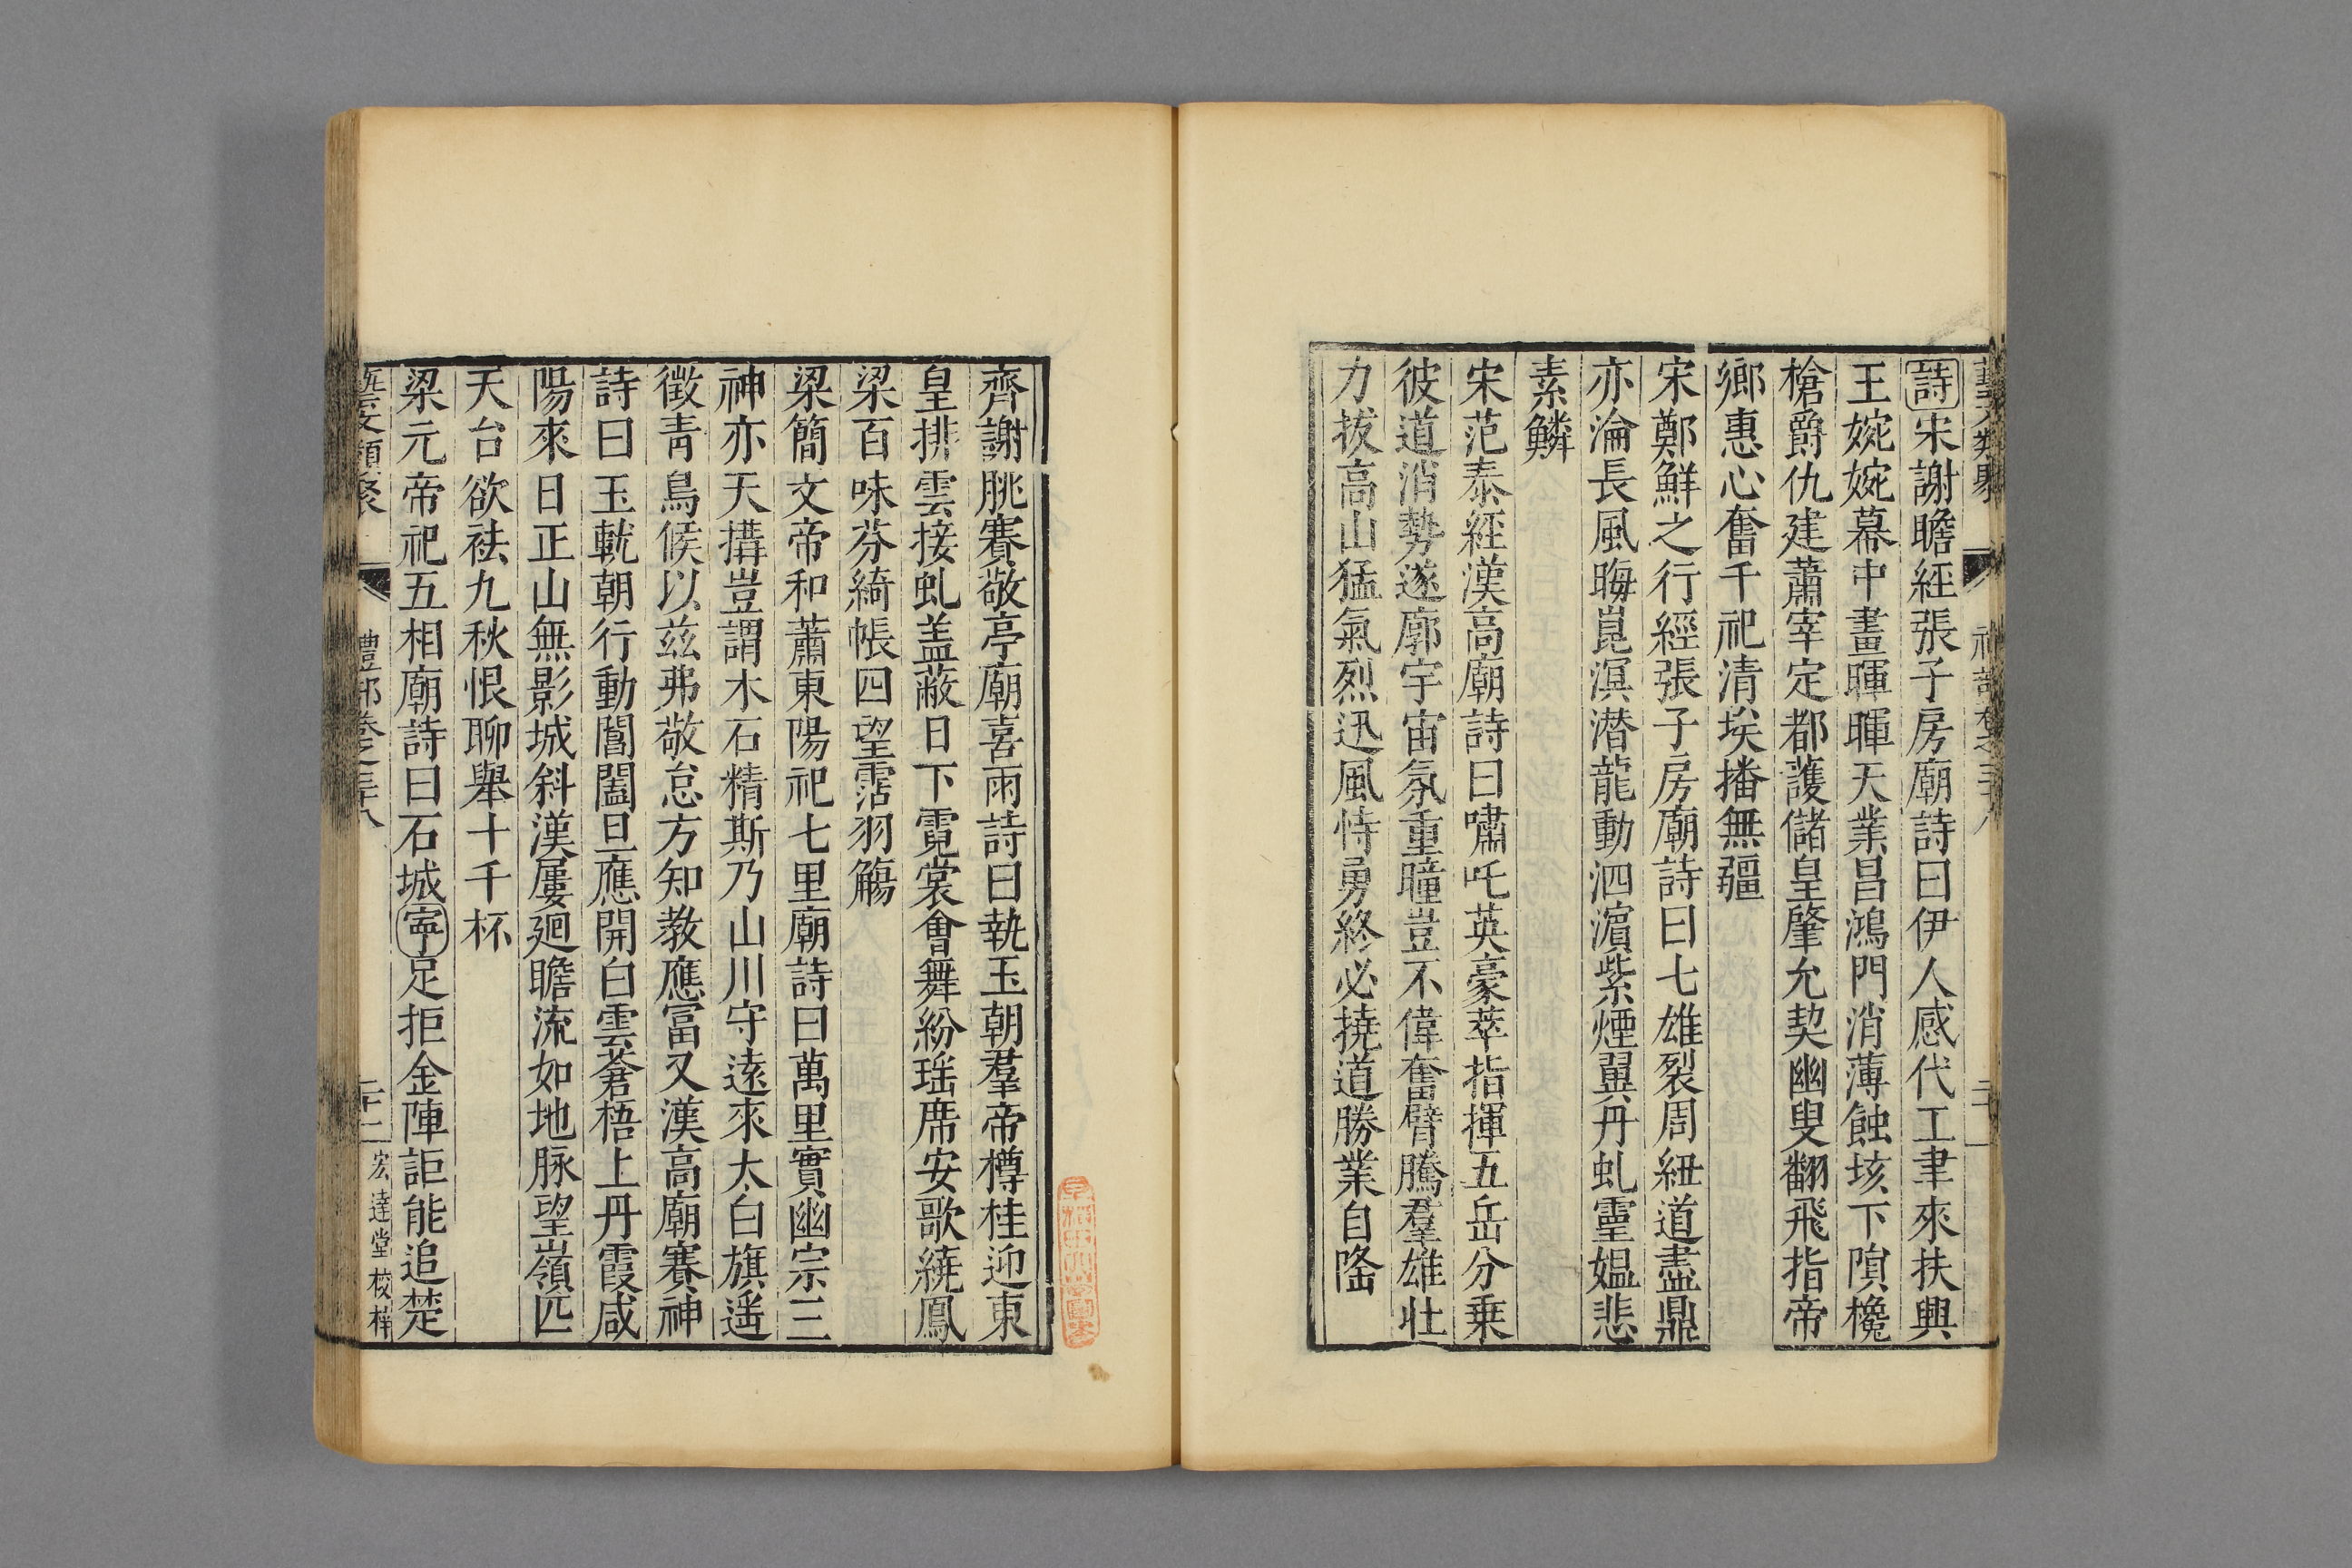 詩宋謝瞻經張子房廟詩曰伊人感代工聿來扶興
王婉婉幕中畫暉暉天業昌鴻門消薄蝕垓下隕欃
槍爵仇建蕭宰定都護儲皇肇允契幽叟翻飛指帝
鄉惠心奮千祀清埃播無疆
宋鄭鮮之行經張子房廟詩曰七雄裂周紐道盡鼎
亦淪長風晦崑溟潛龍動泗濵紫煙翼丹虬靈媪悲
素鱗
宋范泰經漢高廟詩曰嘯吒英豪萃指揮五岳分乗
彼道消勢遂廓宇宙氛重瞳豈不偉奮臂騰羣雄壮
力拔高山猛氣烈迅風恃勇終必撓道勝業自隆
齊謝朓賽敬亭廟喜雨詩曰執玉朝羣帝樽桂迎東
皇排雲接虬盖蔽日下霓裳會舞紛瑤席安歌繞鳳
梁百味芬綺帳四望霑羽觴
梁簡文帝和蕭東陽祀七里廟詩曰萬里實幽宗三
神亦天搆豈謂木石精斯乃山川守逺來太白旗遥
徵青鳥候以兹弗敬怠方知教應冨又漢高廟賽神
詩曰玉軏朝行動閶闔旦應開白雲蒼梧上丹霞咸
陽來日正山無影城斜漢屢廻瞻流如地脉望嶺匹
天台欲袪九秋恨聊舉十千杯
梁元帝祀五相廟詩曰石城寜足拒金陣詎能追楚
藝文類聚 禮部卷之三十八 二十二 宏達堂校梓